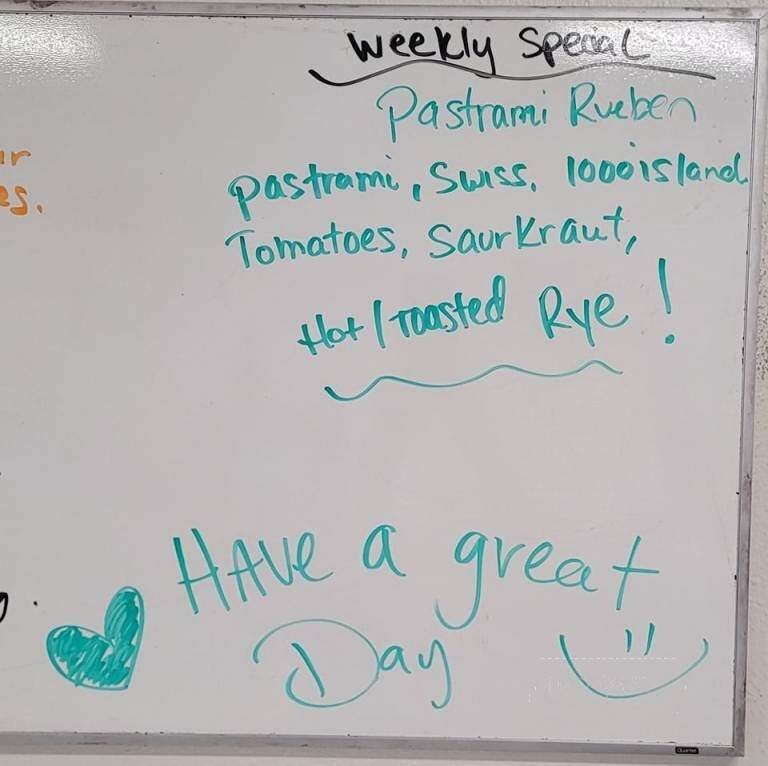 Weekly Special
Pastrami Rueben
Pastrami, Swiss, 1000island
Tomatoes, Saurkraut,
Hot/Toasted Rye!
es.
HAVE a great
Day
Quartet